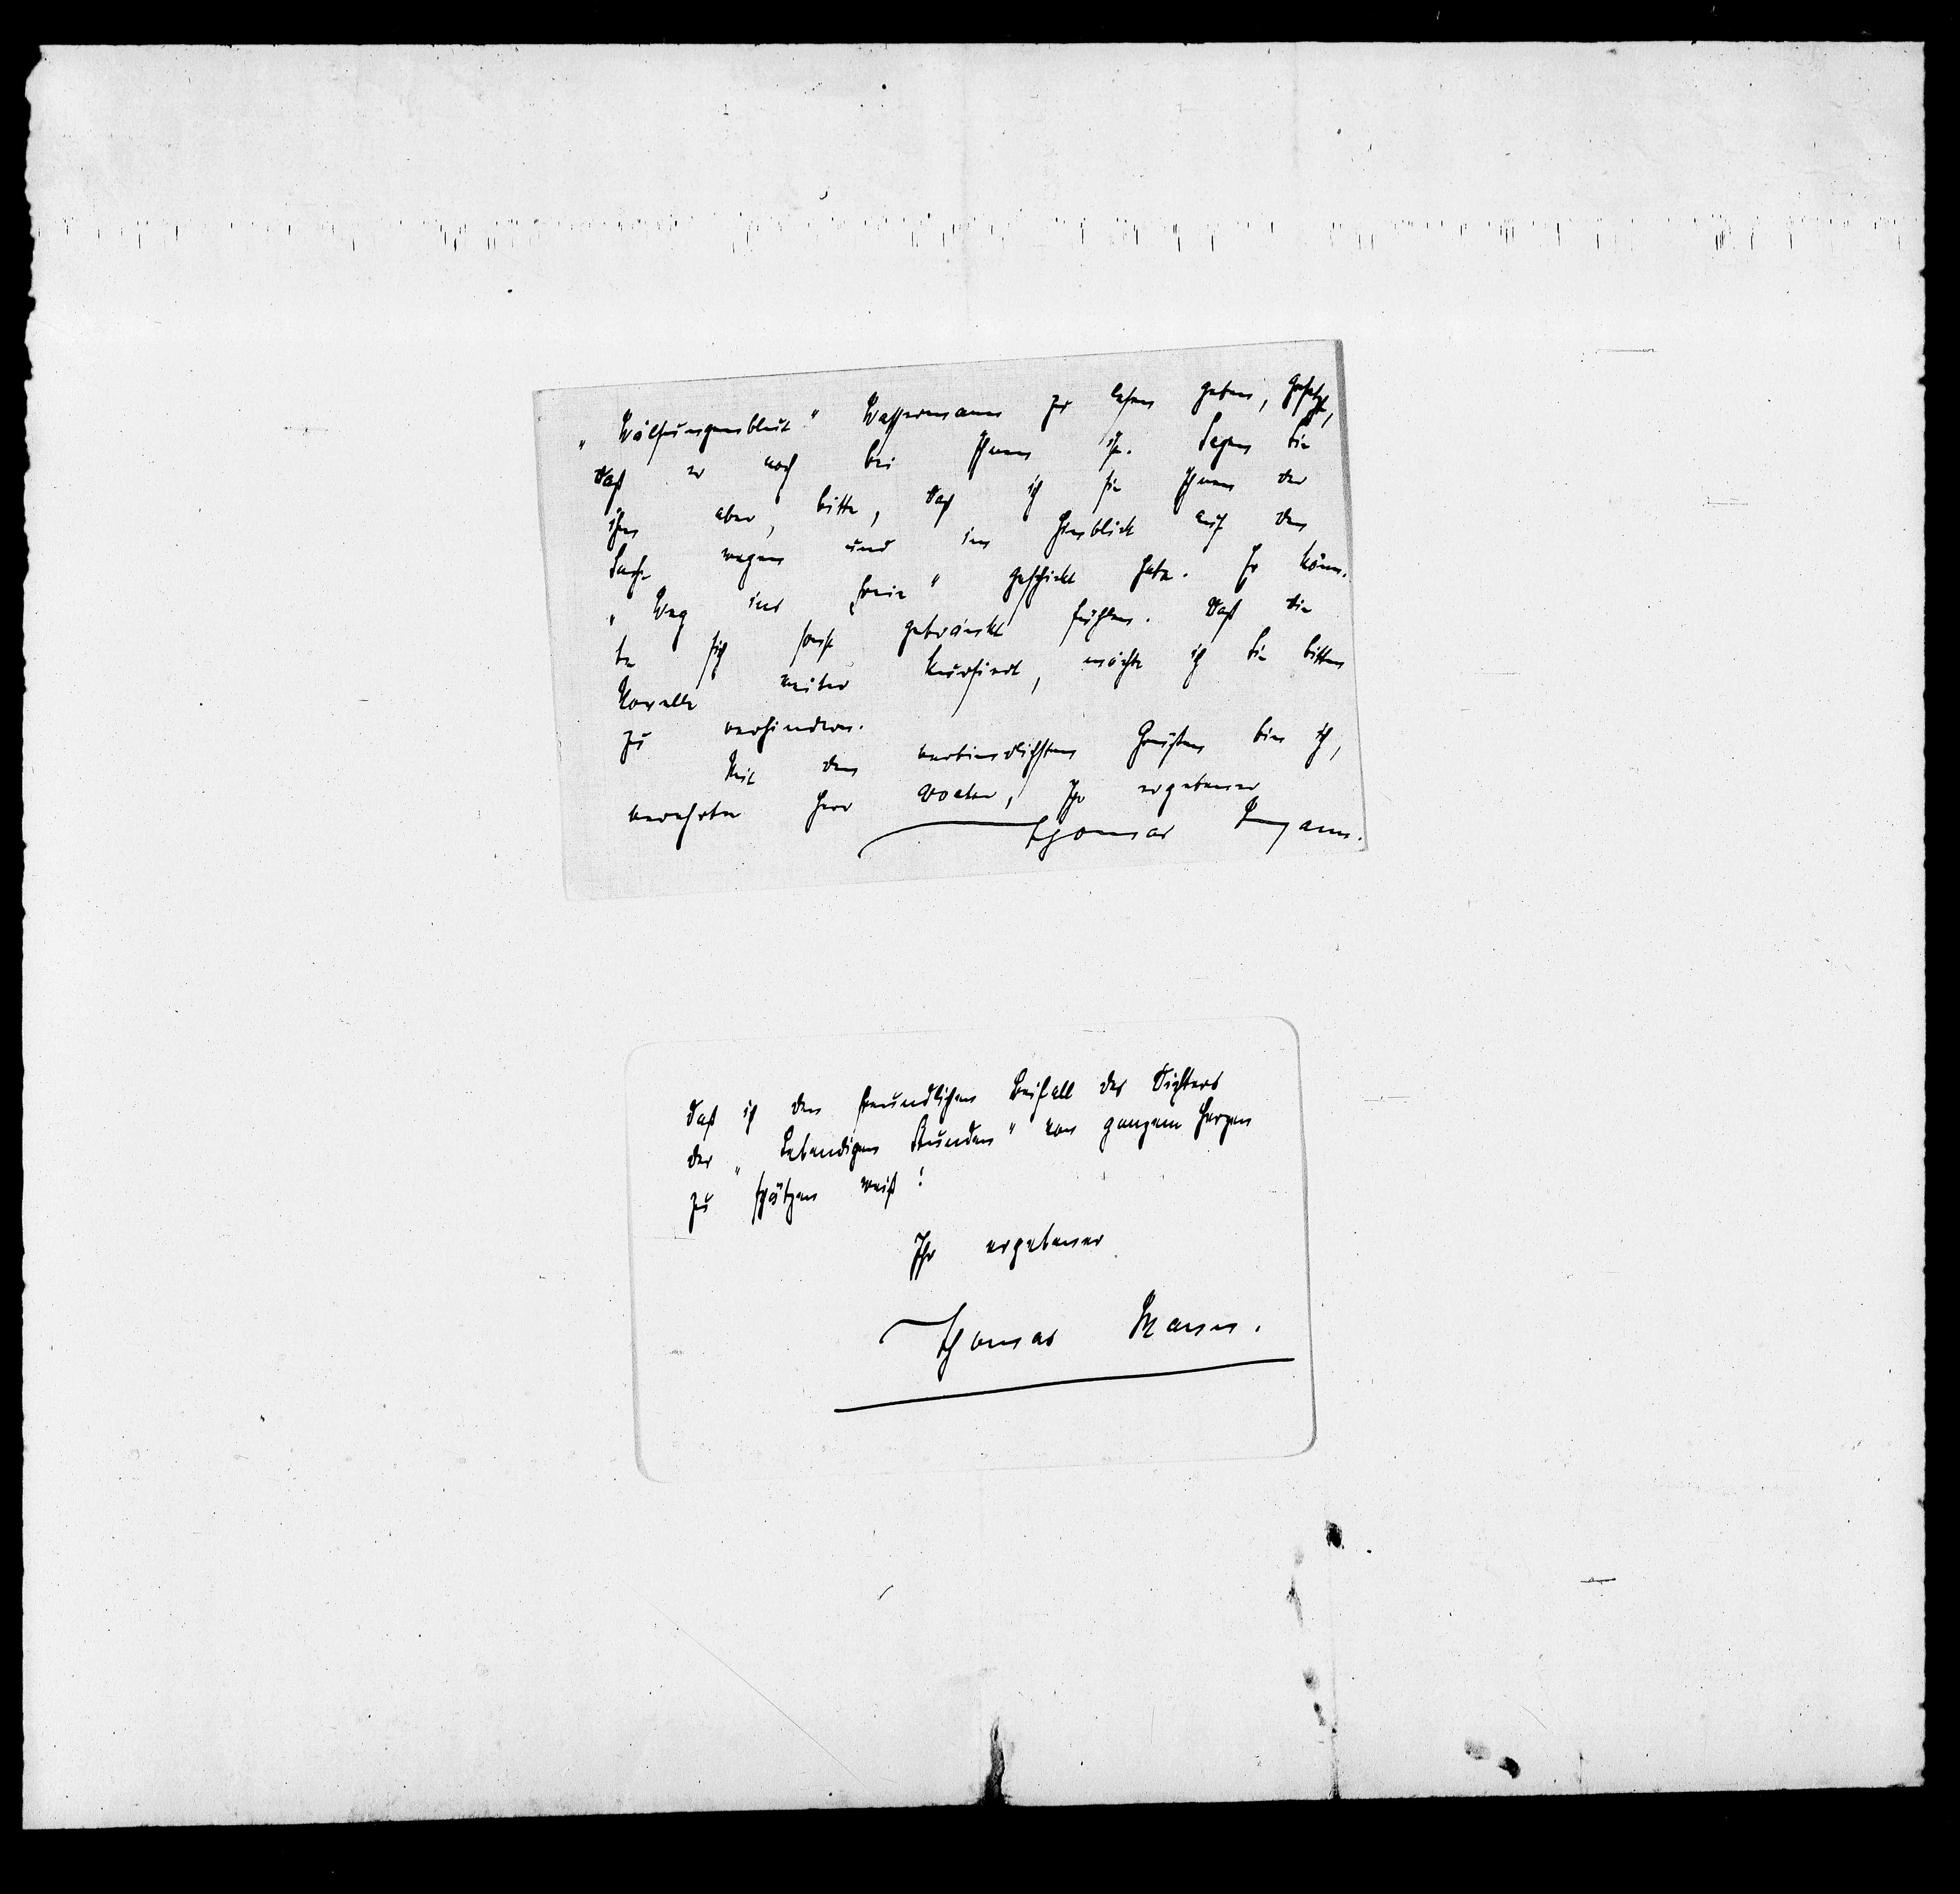 „Wälsungenblut" Wassermann zu lesen geben, gesetzt,
daß er noch bei Ihnen ist. Sagen Sie
ihm aber, bitte, daß ich sie Ihnen der
Sache wegen und im Hinblick auf den
„Weg ins Freie" geschickt habe. Er könn-
te sich sonst gekränkt fühlen. Daß die
Novelle weiter kursiert, möchte ich Sie bitten
zu verhindern.
Mit den verbindlichsten Grüßen bin ich,
verehrter Herr Doctor, Ihr ergebener
Thomas Mann.
Daß ich den freundlichen Beifall des Dichters
der „Lebendigen Stunden" von ganzem Herzen
zu schätzen weiß!
Ihr ergebener
Thomas Mann.